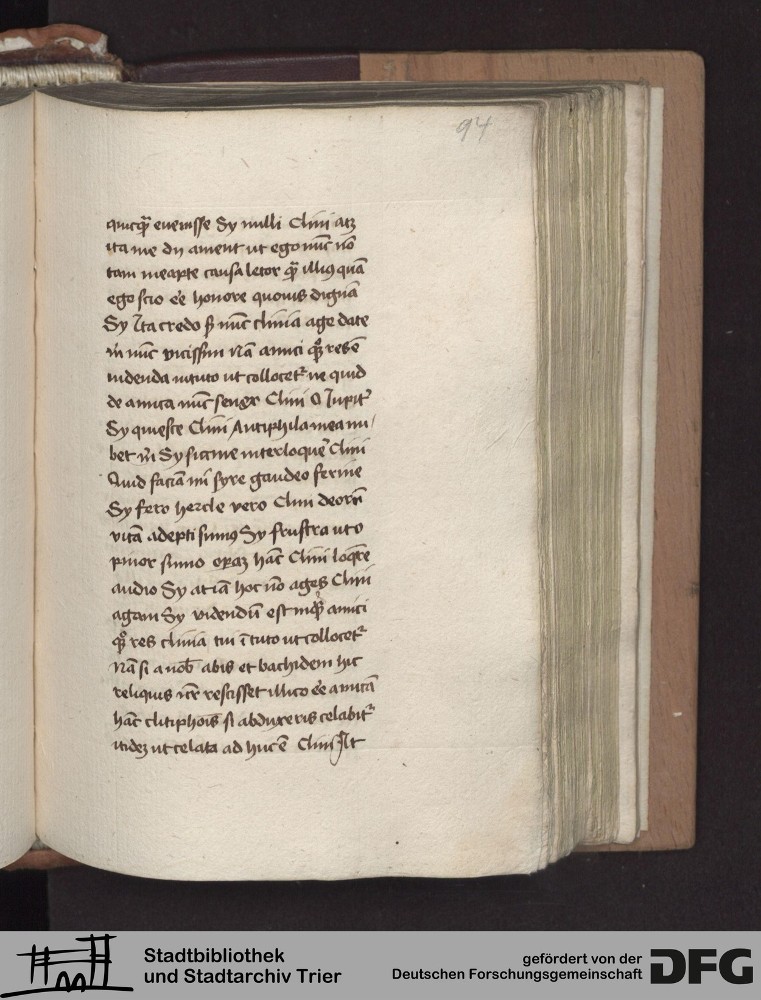 94
quicq̃ evenisse Sy nulli Clini atq
ita me dii ament ut ego nūc nō
tam meapte causa letor q̃ illiꝰ quā
ego scio eē honore quovis dignā
Sy Ita credo s̄ nūc clinia age date
m̄ nūc vicissim Nā amici qͦꝫ res ē
videnda in tuto ut collocet᷑ ne quid
de amica nūc senex Clini O Iupit᷑
Sy quiesce Clini Antiphila mea nu
bet m̄ Sy siccine interloquē Clini
Quid faciā mi syre gaudeo ferme
Sy fero hercle vero Clini deorū
vitā adepti sumꝰ Sy frustra ut o
pinor sumo operaꝫ hāc Clini loq̄re
audio Sy at iā hoc nō ages Clini
agam Sy videndū est inq̄ amici
qͦꝫ res clinia tui ī tuto ut collocet᷑
Nā si a nob̄ abis et bachidem hic
reliquis nr̄ rescisset illico eē amicā
hāc clitiphoīs si abduxeris celabit᷑
itideꝫ ut celata ad huc ē Clini At
Stadtbibliothek
und Stadtarchiv Trier
gefördert von der
Deutschen Forschungsgemeinschaft
DFG